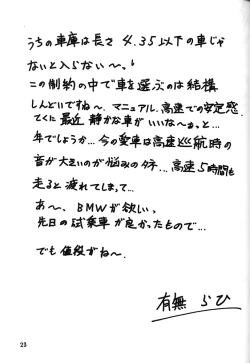 うちの車庫は長さ 4.35以下の車じゃ
ないと入らない〜。
この制約の中で車を選ぶのは結構
しんどいですね〜。マニュアル、高速での安定感、
てくに最近 静かな車がいいな〜ぁっと…
年でしょうか…今の愛車は高速巡航時の
音が大きいのが悩みのタネ…高速5時間も
走ると疲れてしまって…
あ〜、BMWが欲しい。
先日の試乗車が良かったもので…
でも値段がね〜。
有無 らひ
23